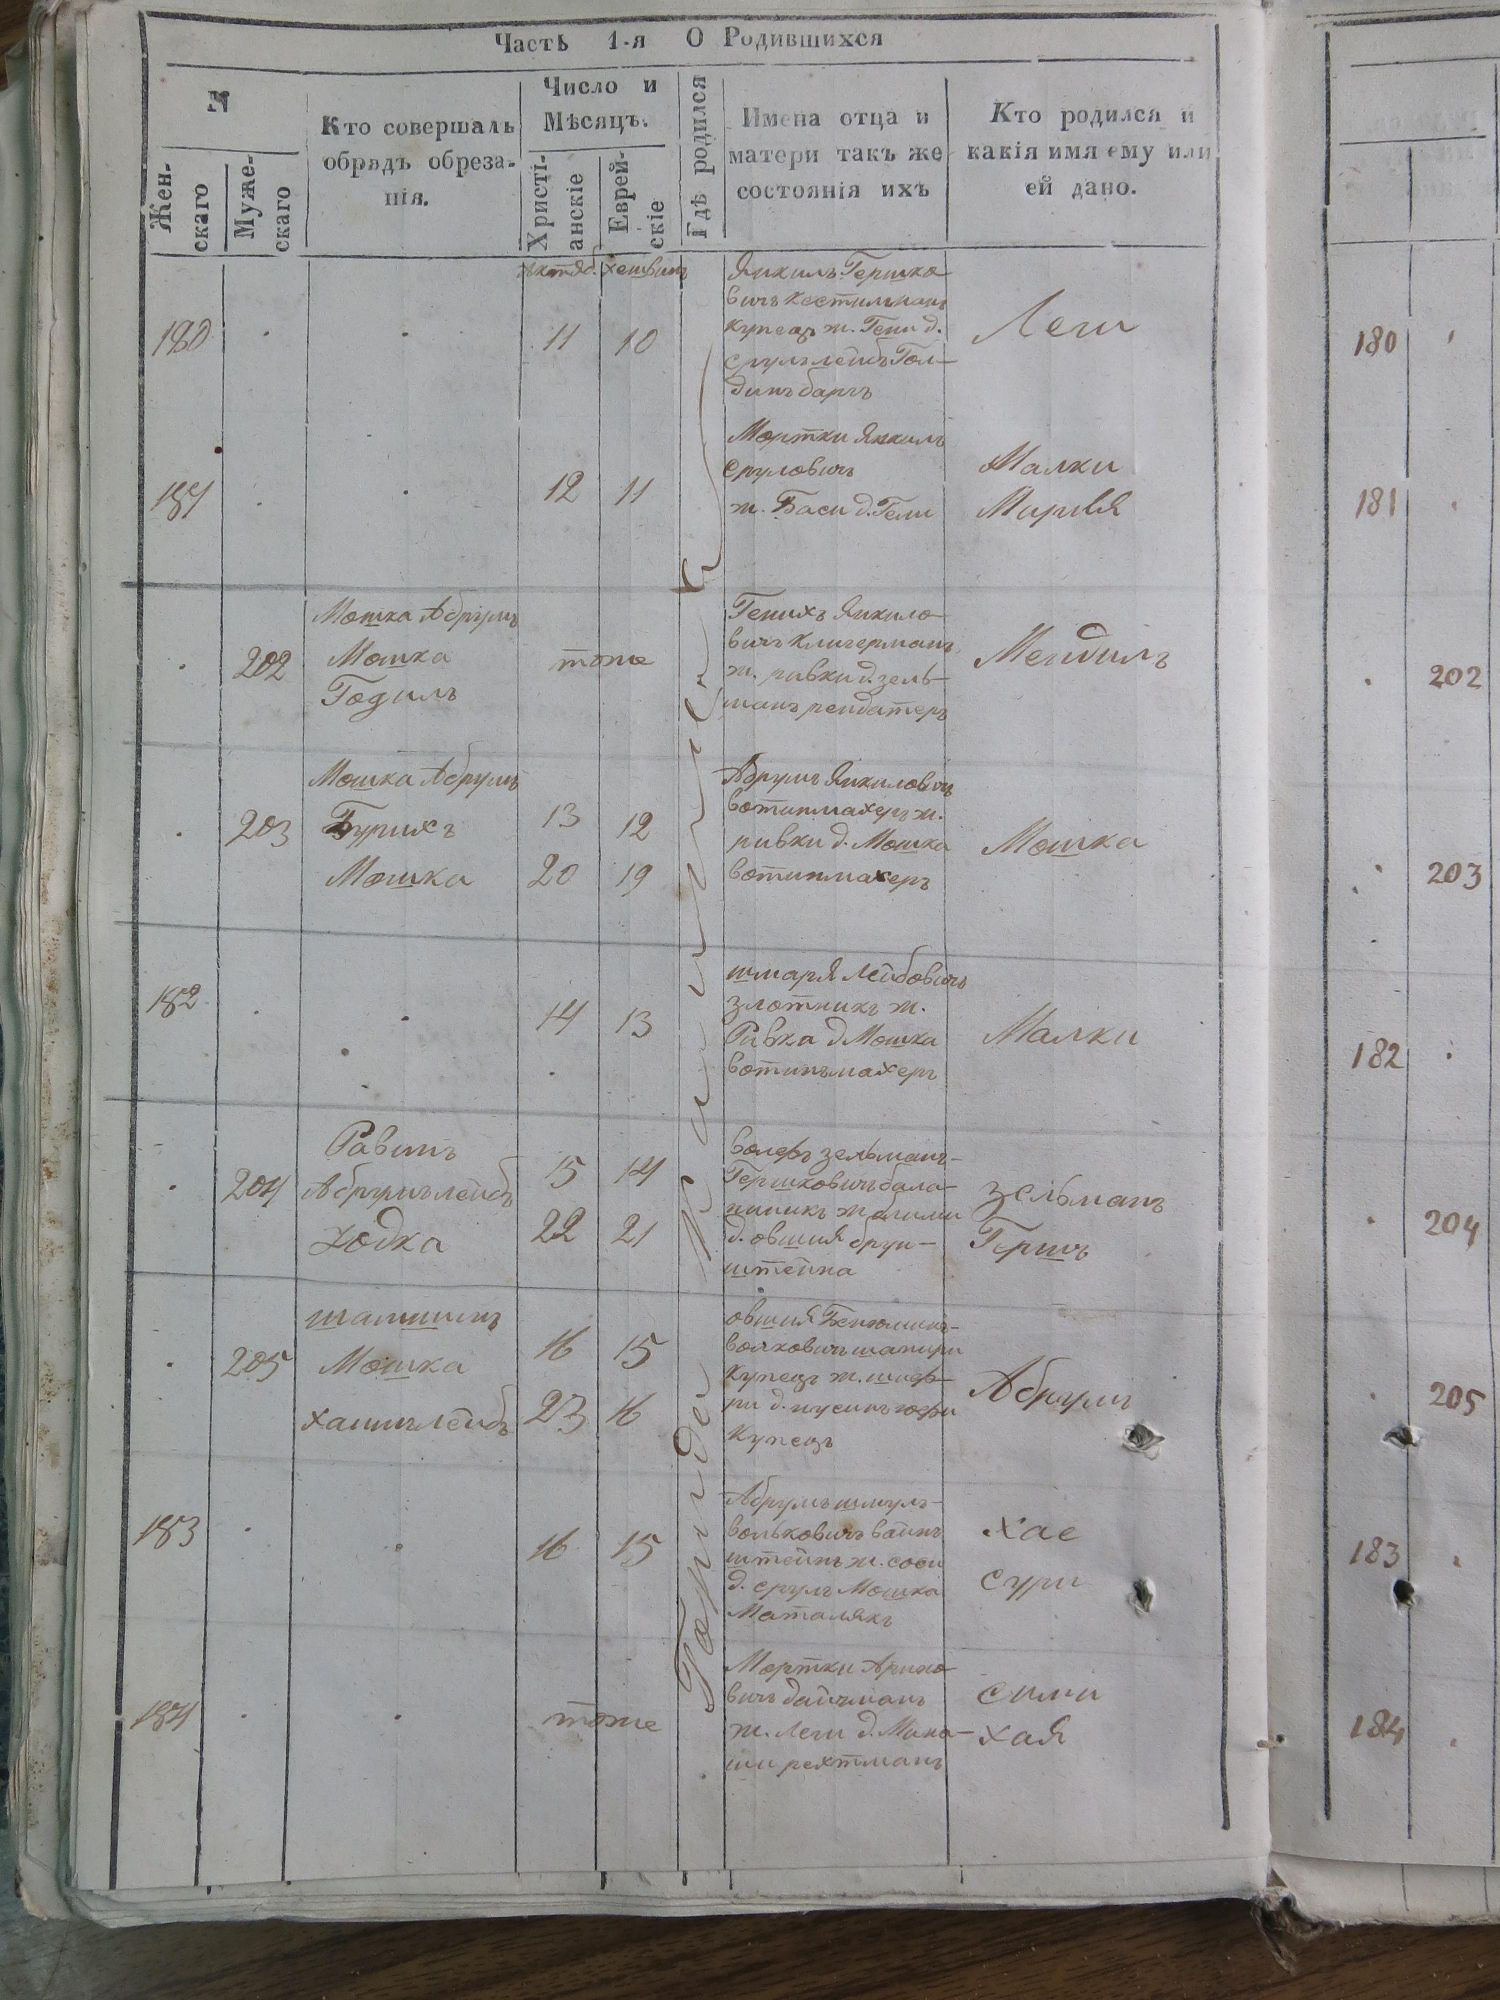 Часть 1-я О Родившихся
№
Жен-
скаго
Муже-
скаго
Кто совершалъ
обрядъ обреза-
нія.
Число и
Мѣсяцъ.
Христі-
анскіе
Еврей-
скіе
Гдѣ родился
Имена отца и
матери такъ же
состоянія ихъ
Кто родился и
какія имя ему или
ей дано.
октяб. хешвинъ
180
11 10
Янкиль Гершко
вичъ
купецъ ж. Гени д.
срульлейбъ Гол-
динъбаргъ
Леи
181
12 11
Мортки Янкиль
сруловичъ
ж. Баси д. Гели
Малки
Мирьвя
202
Мошка Абрумъ
Мошка
Годиль
тоже
Генихъ Янкило
вичъ Клигерманъ
ж. ривки д. зель-
манъ рендатеръ
Мендиль
203
Мошка Абрумъ
Бурихъ
Мошка
13 12
20 19
Абрумъ Янкиловичъ
вотинмахеръ ж.
ривки д. Мошка
вотинмахеръ
Мошка
182
14 13
шмаря Лейбовичъ
злотникъ ж.
Ривка д Мошка
вотинъмахеръ
Малки
204
Равинъ
Абрумълейбъ
Іодка
15 14
22 21
волфъ зельманъ-
Гершковичъ бала-
д. овшия брун-
штейна
зельманъ
Гершъ
205
Мошка
хаимълейбъ
16 15
23 16
овшия Бениоминъ-
волковичъ шапири
купецъ ж. шиф-
ри д.
купецъ
Абрумъ
183
16 15
Абрумъ шмуль-
вольковичъ ваинъ
штейнъ ж. соси
д. сруль Мошка
Маталякъ
хае
сури
184
тоже
Мортки Арино
вичъ дайчманъ
ж. Леи д. Мина-
ши рехтманъ
сими
хая
180
181
202
203
182
204
205
183
184